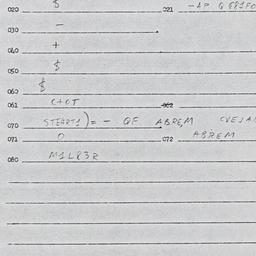 020 $ 021 -AP Q
030 -
040 +
050 $
060 $
061 C+OT 062
070 STEART1)= - QF ABREM CVEJA
071 O 072 ABREM
080 M1L83R